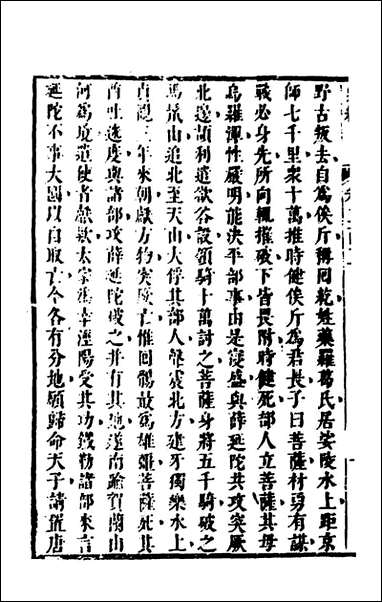 野古叛去自為俟斤稱回紇姓藥羅葛氏居娑陵水上距京
師七千里眾十萬推時健俟斤為君長子曰菩薩材勇有謀
戰必身先所向輒摧破下皆畏附時健死部人立菩薩其母
烏羅渾性嚴明能決平部事由是寖盛與薛延陀共攻突厥
北邊頡利遣欲谷設領騎十萬討之菩薩身將五千騎破之
馬鬣山追北至天山大俘其部人聲震北方建牙獨樂水上
貞觀三年來朝獻方物突厥亡惟回鶻最為雄彊菩薩死其
酋吐迷度與諸部攻薛延陀破之并有其地遂南踰賀蘭山
河為境遣使者獻款太宗為幸涇陽受其功鐵勒諸部來言
延陀不事大國以自取亡今各有分地願歸命天子請置唐